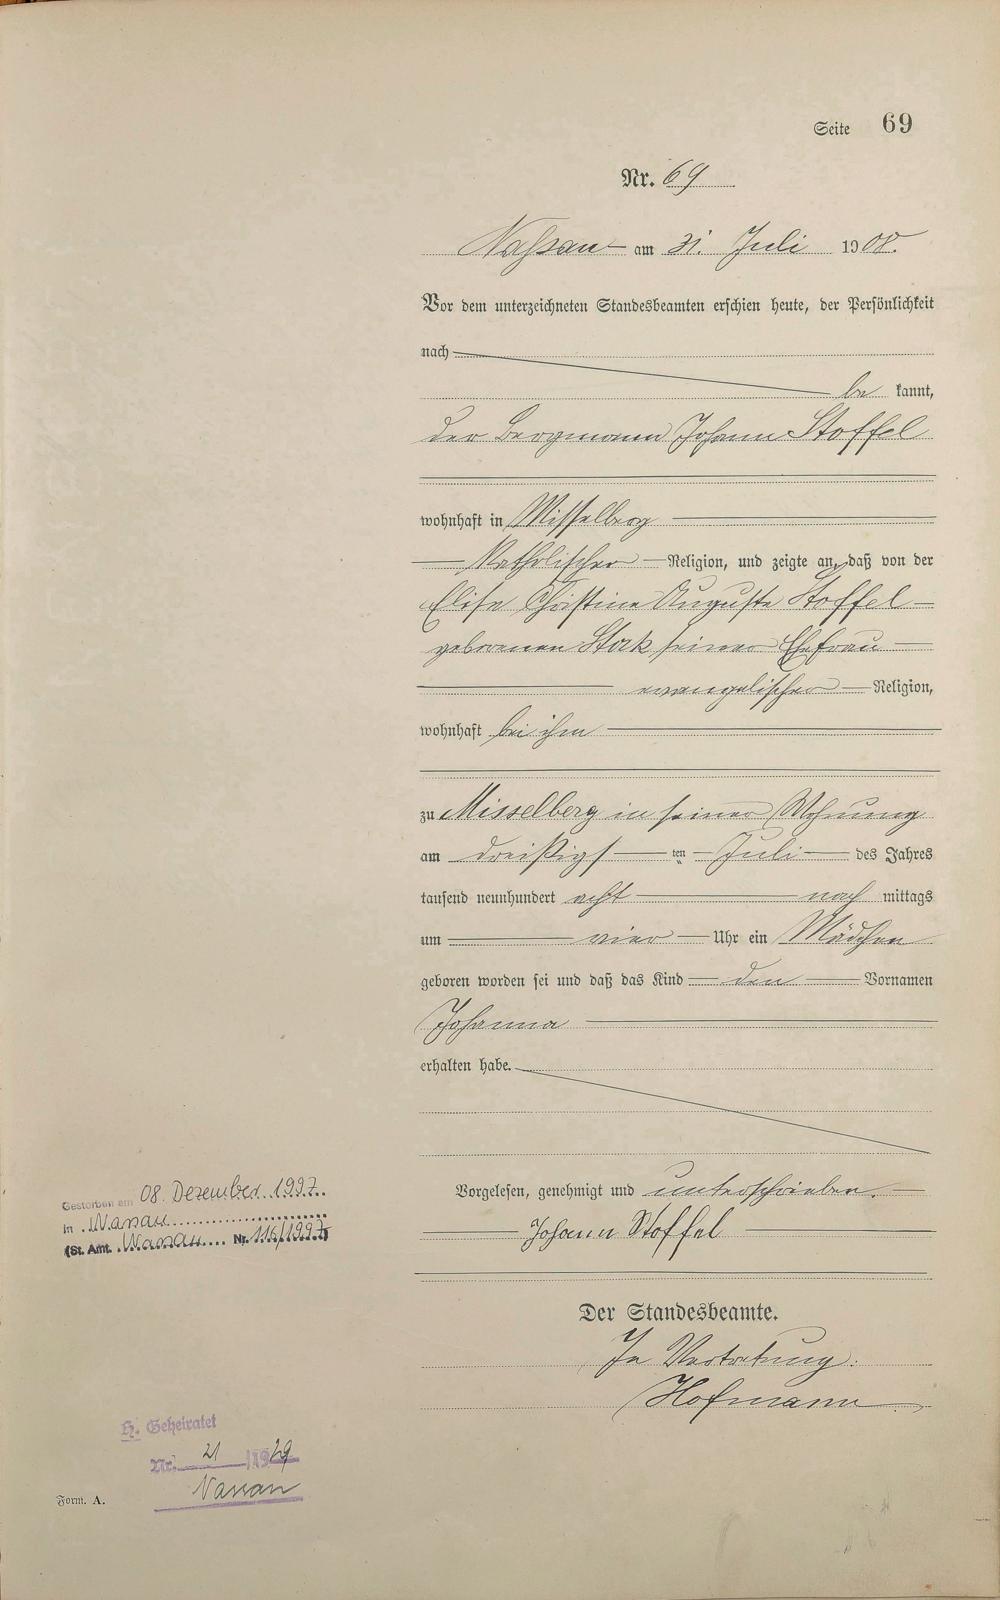 Seite 69
Nr. 69
Nassau am 31. Juli 1908.
Vor dem unterzeichneten Standesbeamten erschien heute, der Persönlichkeit
nach
be kannt,
der Bergmann Johann Stoffel
wohnhaft in Misselberg
katholischer Religion, und zeigte an, daß von der
Elise Christine Auguste Stoffel
geborenen Stork seiner Ehefrau
evangelischer Religion,
wohnhaft bei ihm
zu Misselberg in seiner Wohnung
am dreißigsten Juli des Jahres
tausend neunhundert acht nach mittags
um vier Uhr ein Mädchen
geboren worden sei und daß das Kind den Vornamen
Johanna
erhalten habe.
Vorgelesen, genehmigt und unterschrieben.
Johann Stoffel
Der Standesbeamte.
In Vertretung:
Hofmann
Gestorben am 08. Dezember 1997
in Nassau
(St. Amt. Nassau Nr. 116/1997)
H. Geheiratet
Nr. 21 /1929
Nassau
Form. A.